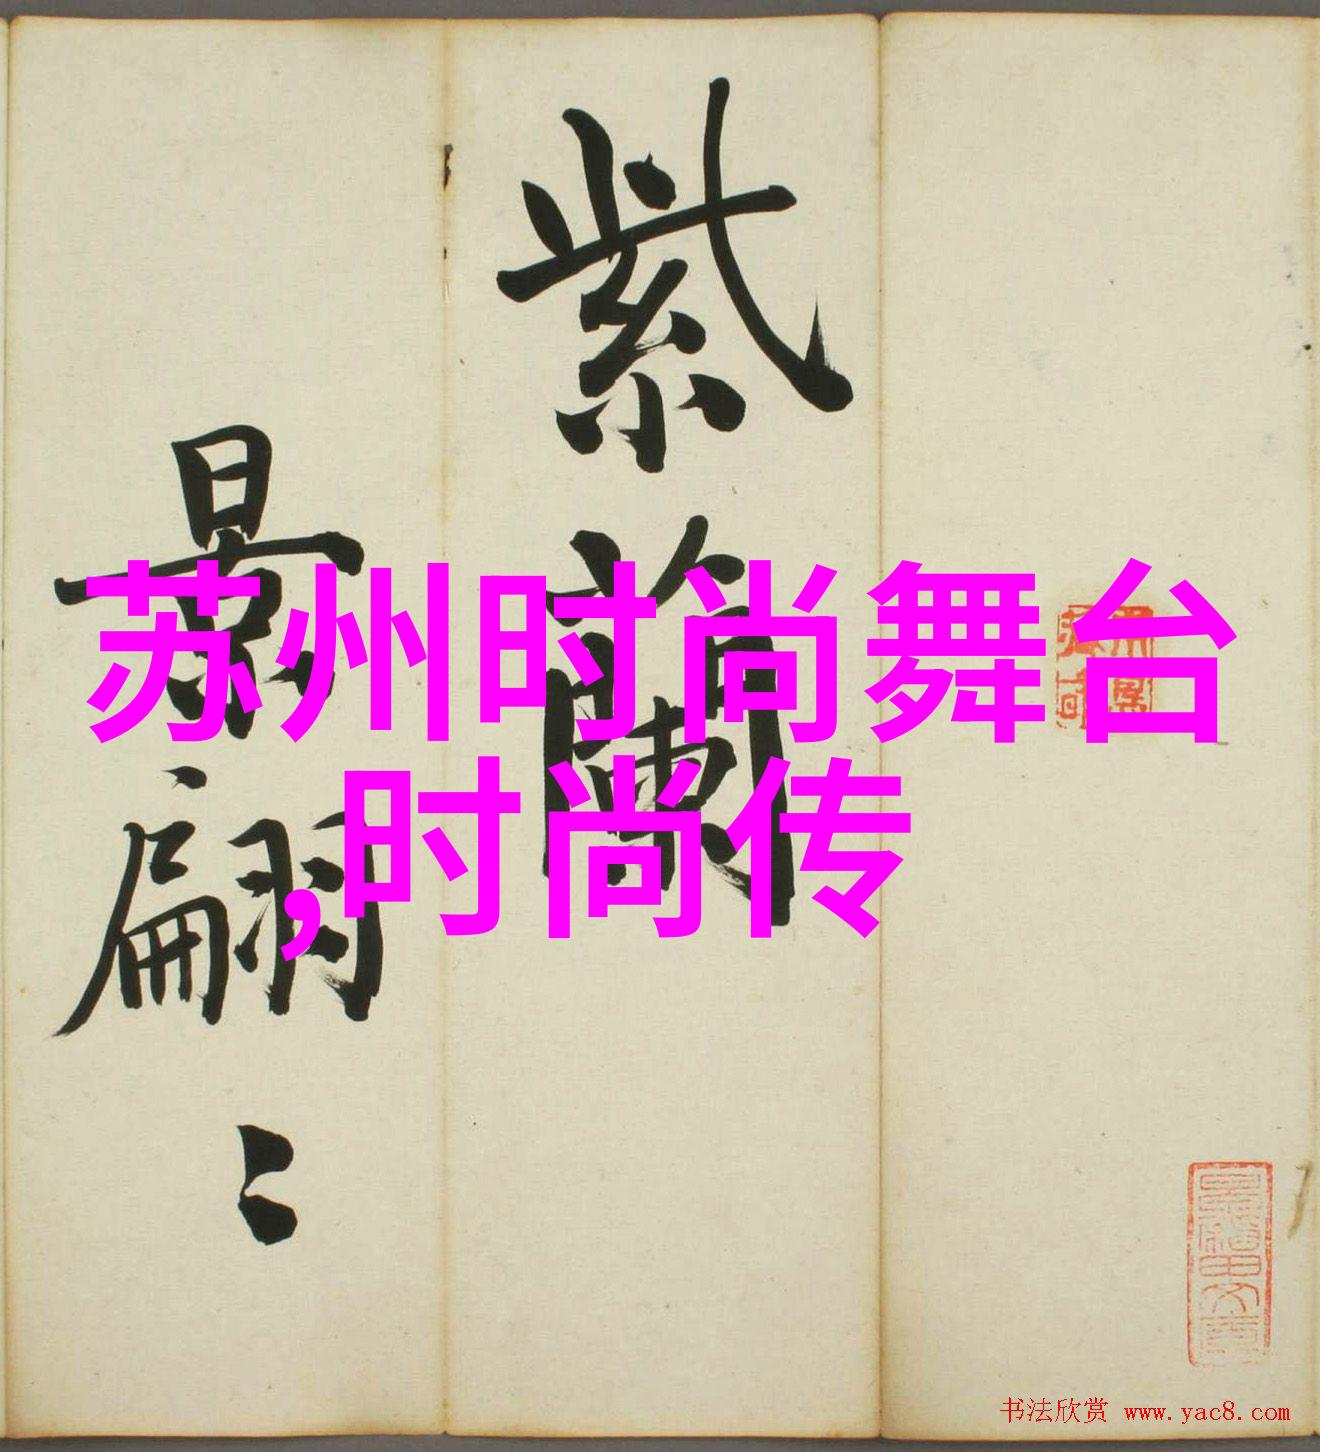 紫蘭
景翩〻
苏州时尚舞台
,时尚传
书法欣赏 www.yac8.com